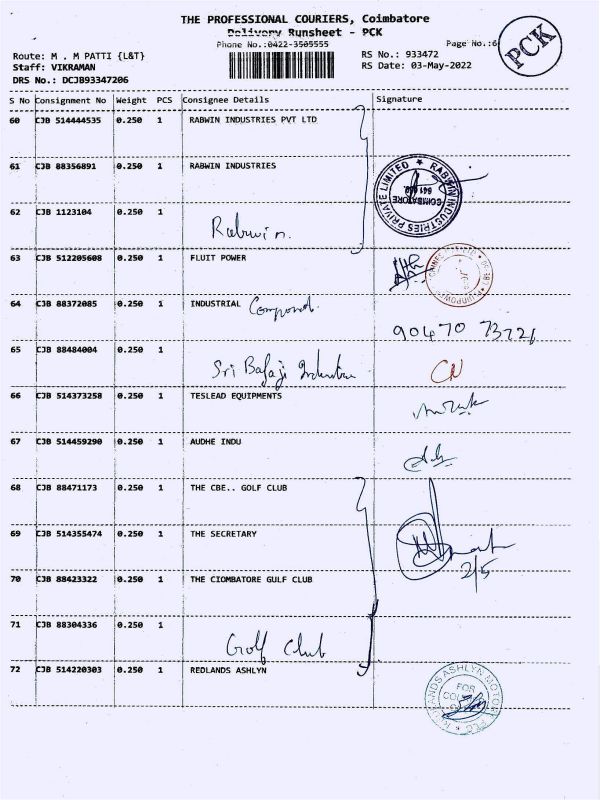 THE PROFESSIONAL COURIERS, Coimbatore
Delivery Runsheet - PCK
Phone No.:0422-3505555
Page No.:6
PCK
Route: M . M PATTI {L&T}
Staff: VIKRAMAN
DRS No.: DCJB93347206
RS No.: 933472
RS Date: 03-May-2022
S No Consignment No Weight PCS Consignee Details Signature
60 CJB 514444535 0.250 1 RABWIN INDUSTRIES PVT LTD
61 CJB 88356891 0.250 1 RABWIN INDUSTRIES
RABWIN INDUSTRIES PRIVATE LIMITED
COIMBATORE
62 CJB 1123104 0.250 1
Rabwin.
63 CJB 512205608 0.250 1 FLUIT POWER
64 CJB 88372085 0.250 1 INDUSTRIAL
90470 73721
65 CJB 88484004 0.250 1
Sri Balaji
CN
66 CJB 514373258 0.250 1 TESLEAD EQUIPMENTS
67 CJB 514459290 0.250 1 AUDHE INDU
68 CJB 88471173 0.250 1 THE CBE.. GOLF CLUB
69 CJB 514355474 0.250 1 THE SECRETARY
2/5
70 CJB 88423322 0.250 1 THE CIOMBATORE GULF CLUB
71 CJB 88304336 0.250 1
Golf Club
72 CJB 514220303 0.250 1 REDLANDS ASHLYN
REDLANDS ASHLYN MOTORS PLC
FOR